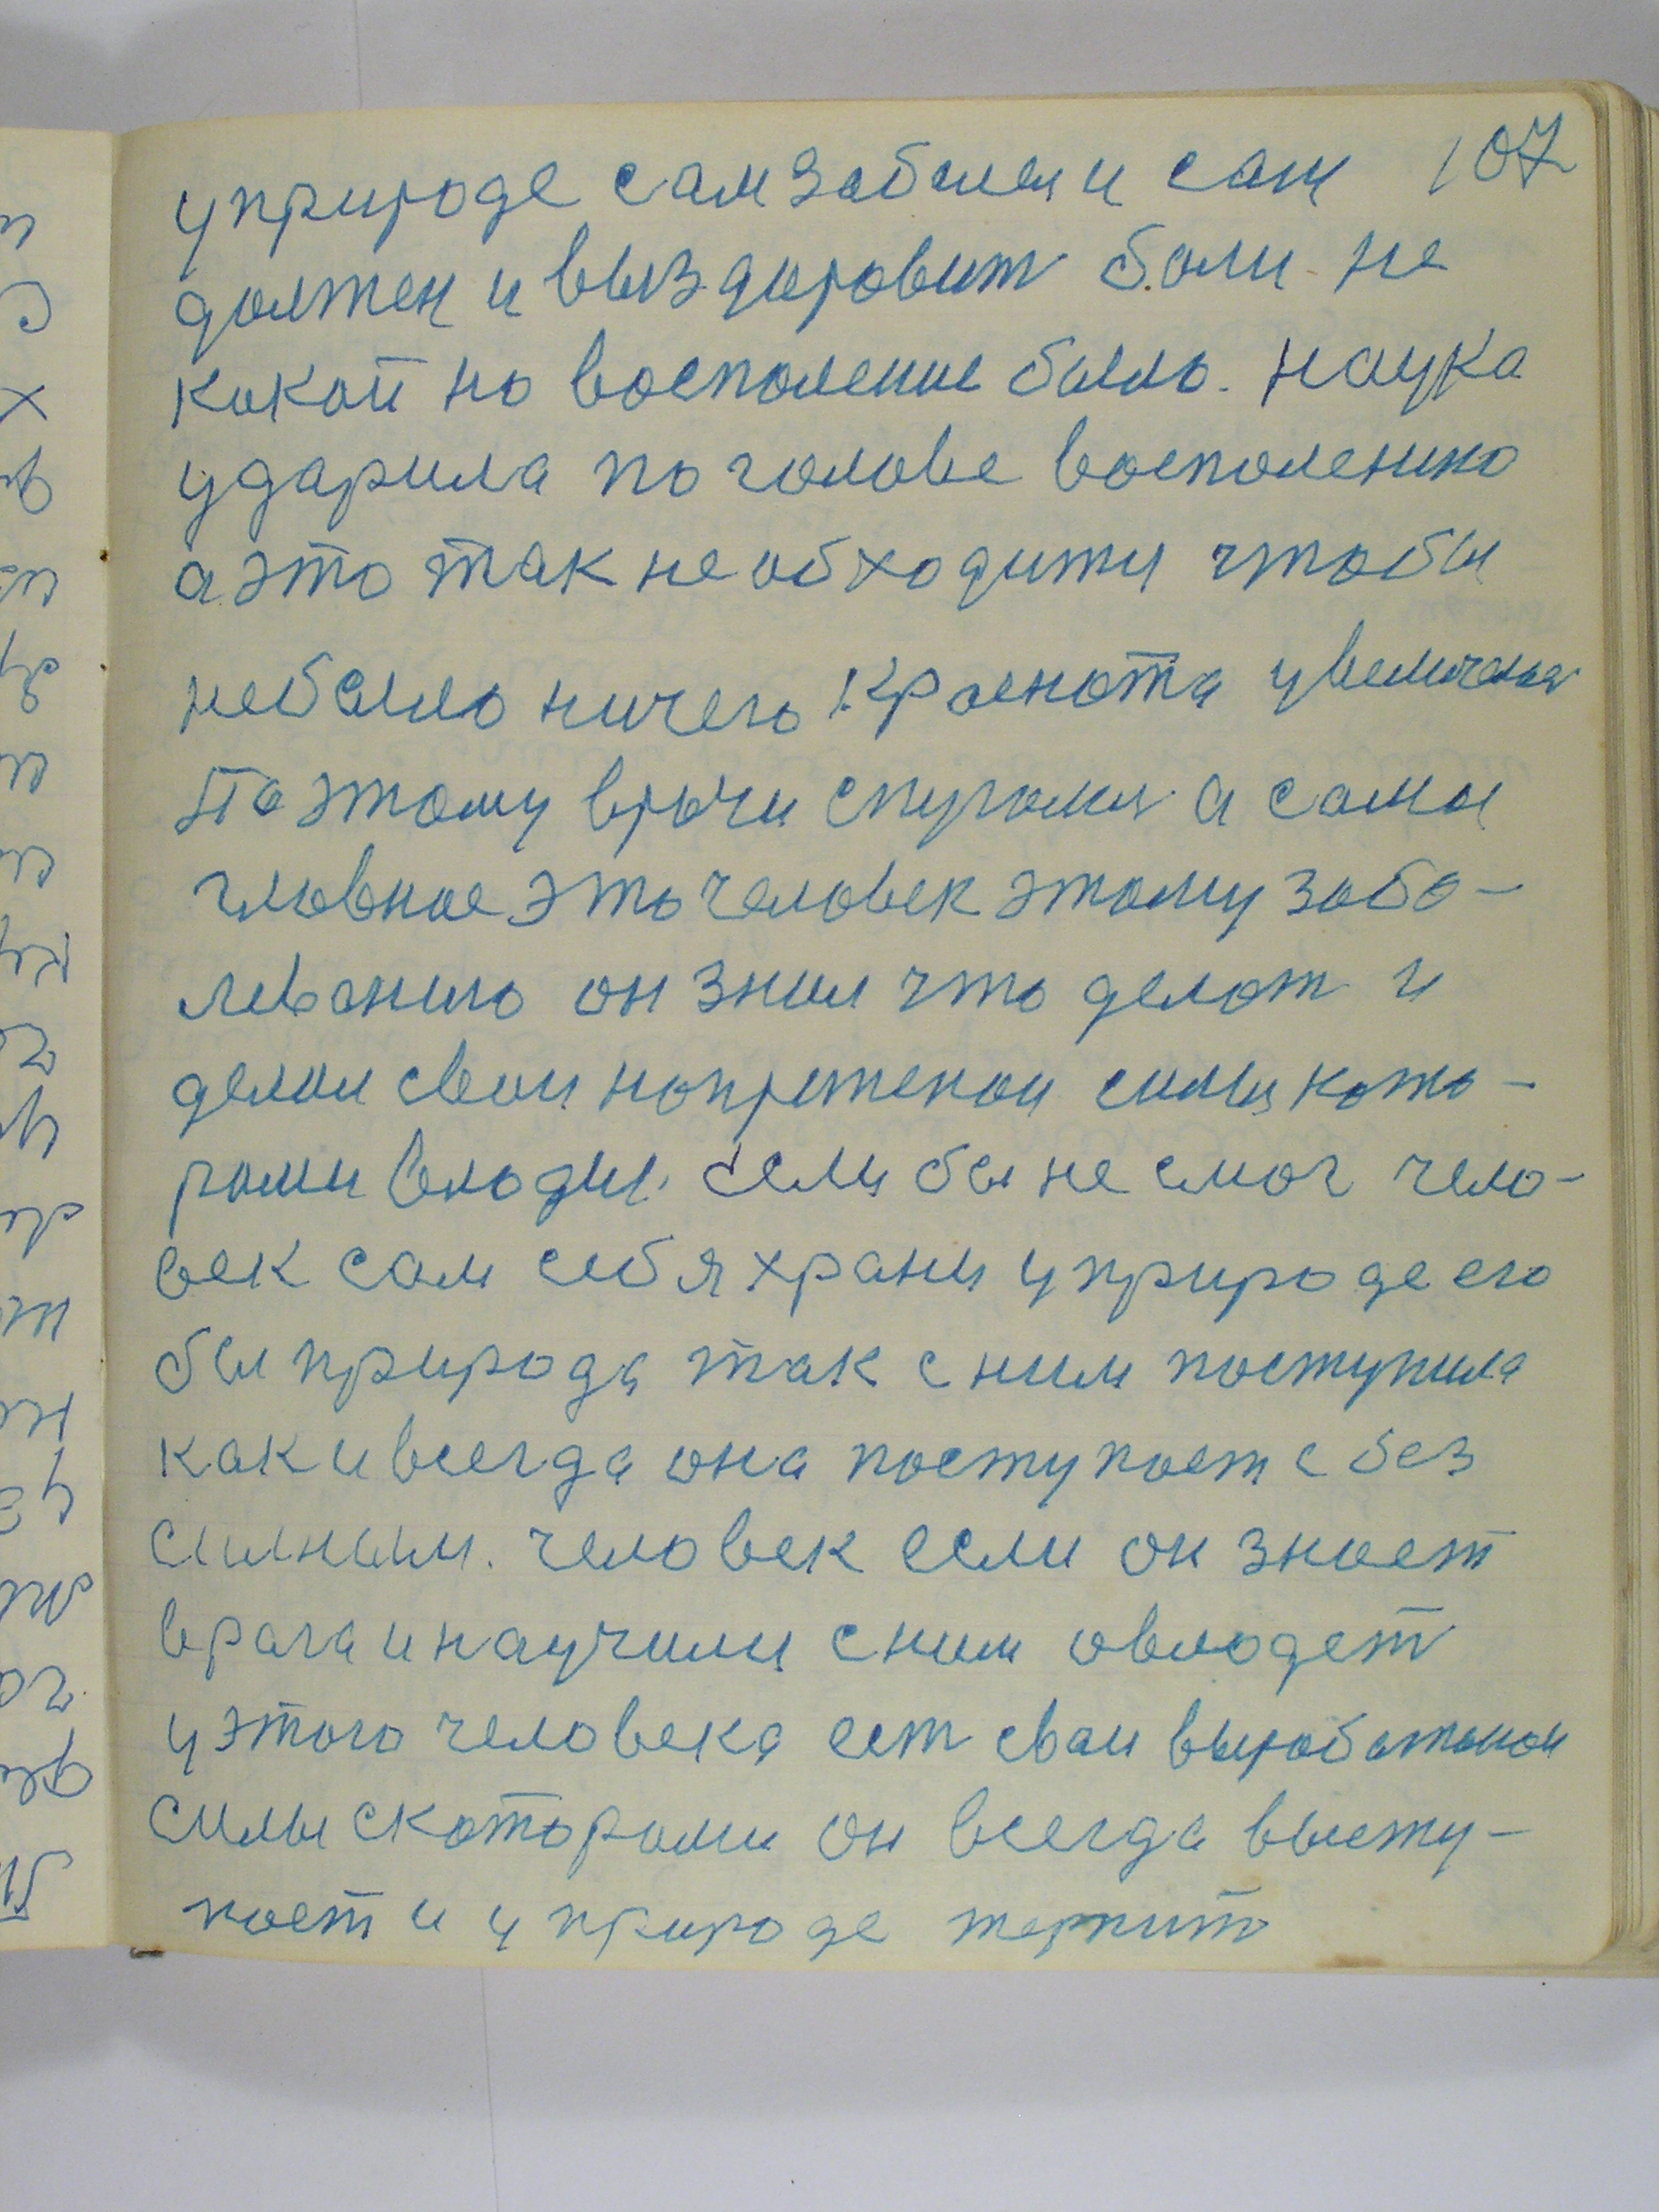 107
у природе сам заболел и сам
должен и выздоровит боли не
какой но восполение было. наука
ударила по голове восполению
а это так необходимы чтобы
небыло ничего краснота увеличеная
Поэтому врачи спугоми а самы
гловное это человек этому забо-
леванию он знил что делат и
делал свои нопряженои силы кото-
роми влодил. если бы не смог чело-
век сам себя храни у природе его
бы природа так с ним поступила
как и всегда она поступает с без
силным. человек если он знает
врага и научили с ним овлодет
у этого человека ест свои выработонои
силы с которыми он всегда высту-
пает и у природе терпит